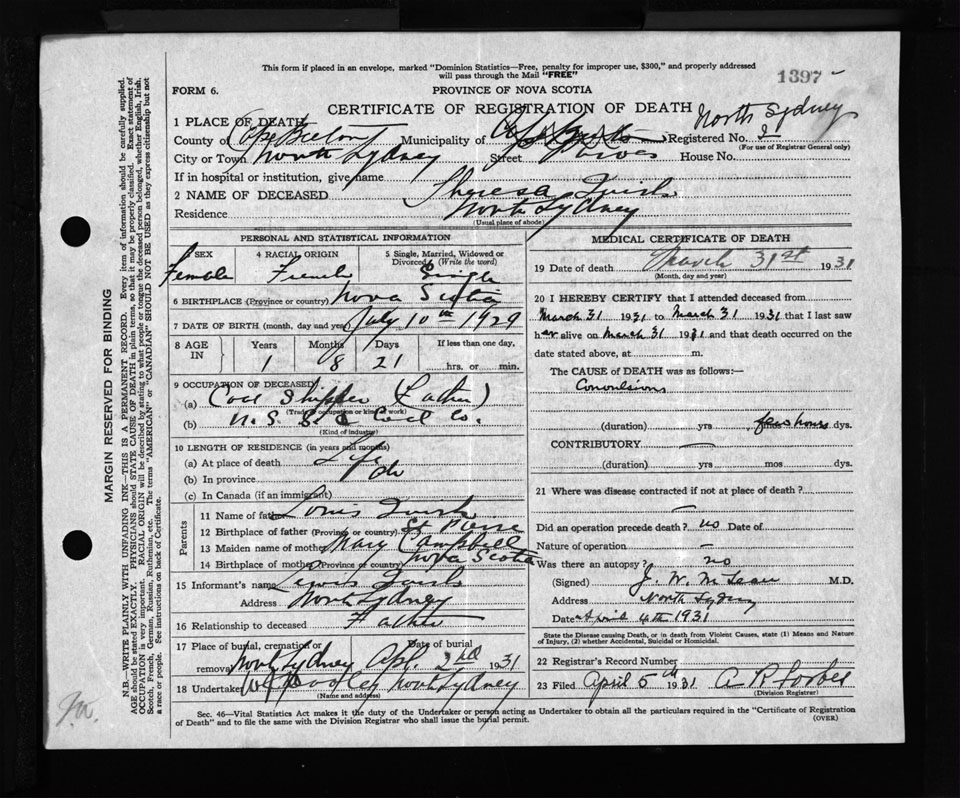 This form if placed in an envelope, marked "Dominion Statistics—Free, penalty for improper use, $300," and properly addressed
will pass through the Mail "FREE"
1397
FORM 6.
PROVINCE OF NOVA SCOTIA
CERTIFICATE OF REGISTRATION OF DEATH
North Sydney
1 PLACE OF DEATH
County of Cape Breton Municipality of Registered No.
(For use of Registrar General only)
City or Town North Sydney Street House No.
If in hospital or institution, give name
2 NAME OF DECEASED Theresa
Residence North Sydney
(Usual place of abode)
PERSONAL AND STATISTICAL INFORMATION
SEX 4 RACIAL ORIGIN 5 Single, Married, Widowed or Divorced (Write the word)
Female French Single
6 BIRTHPLACE (Province or country) Nova Scotia
7 DATE OF BIRTH (month, day and year) July 10th 1929
8 AGE IN Years Months Days If less than one day,
1 8 21 hrs. or min.
9 OCCUPATION OF DECEASED
(a) Coal Shipper (Father)
(Trade, occupation or kind of work)
(b) N. S. S. & Coal Co.
(Kind of industry)
10 LENGTH OF RESIDENCE (in years and months)
(a) At place of death Life
(b) In province do
(c) In Canada (if an immigrant)
Parents
11 Name of father Louis
12 Birthplace of father (Province or country) St Pierre
13 Maiden name of mother Mary Campbell
14 Birthplace of mother (Province or country) Nova Scotia
15 Informant's name
Address North Sydney
16 Relationship to deceased Father
17 Place of burial, cremation or removal Date of burial
North Sydney Apr. 2nd 1931
18 Undertaker North Sydney
(Name and address)
MEDICAL CERTIFICATE OF DEATH
19 Date of death March 31st 1931
(Month, day and year)
20 I HEREBY CERTIFY that I attended deceased from
March 31 1931 to March 31 1931 that I last saw
her alive on March 31 1931 and that death occurred on
date stated above, at m.
The CAUSE of DEATH was as follows:
Convulsions
(duration) yrs few hours dys.
CONTRIBUTORY —
(duration) yrs mos dys.
21 Where was disease contracted if not at place of death?
—
Did an operation precede death? no Date of
Nature of operation –
Was there an autopsy? no
(Signed) J. W. McLean M.D.
Address North Sydney
Date April 4th 1931
State the Disease causing Death, or in death from Violent Causes, state (1) Means and Nature of Injury, (2) whether Accidental, Suicidal or Homicidal.
22 Registrar's Record Number
23 Filed April 5th 1931 A R Forbes
(Division Registrar)
Sec. 46—Vital Statistics Act makes it the duty of the Undertaker or person acting as Undertaker to obtain all the particulars required in the "Certificate of Registration
of Death" and to file the same with the Division Registrar who shall issue the burial permit.
(OVER)
MARGIN RESERVED FOR BINDING
N.B.—WRITE PLAINLY WITH UNFADING INK—THIS IS A PERMANENT RECORD. Every item of information should be carefully supplied.
AGE should be stated EXACTLY. PHYSICIANS should STATE CAUSE OF DEATH in plain terms, so that it may be properly classified. Exact statement of
OCCUPATION is very important. RACIAL ORIGIN will be described by stating to what people or tongue the deceased person belonged, whether English, Irish,
Scotch, French, German, Russian, Ruthenian, etc. The terms "AMERICAN" or "CANADIAN" SHOULD NOT BE USED as they express citizenship but not
a race or people. See instructions on back of Certificate.